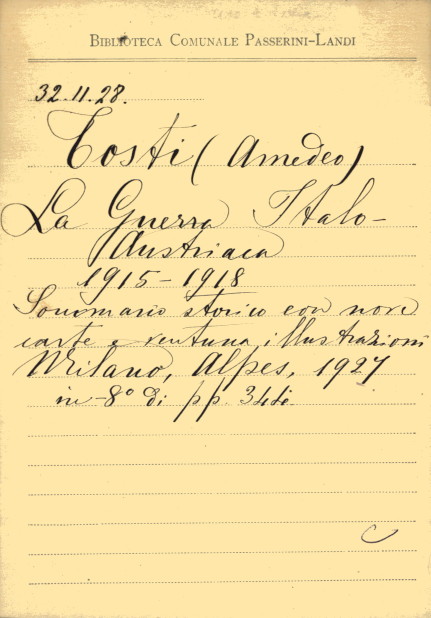 BIBLIOTECA COMUNALE PASSERINI-LANDI
32.11.28.
Tosti (Amedeo)
La Guerra Italo-
Austriaca
1915-1918
Sommario storico con nove
carte e ventuna illustrazioni
Milano, Alpes, 1927
in-8° di pp. 344.
C